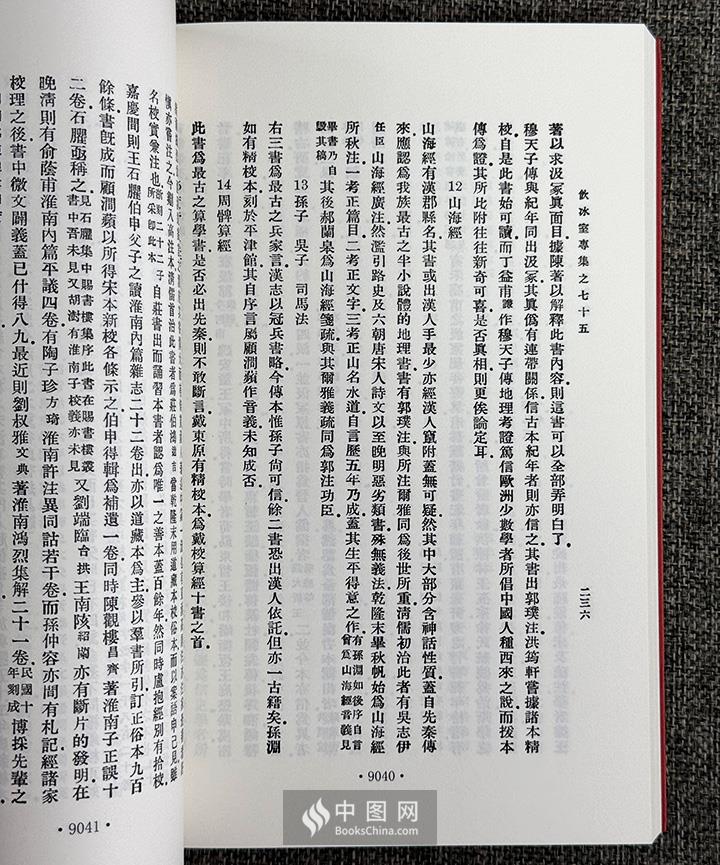 飲冰室專集之七十五
二三六
著以求汲冢眞面目據陳著以解釋此書內容則這書可以全部弄明白了
穆天子傳與紀年同出汲冢其眞僞有連帶關係信古本紀年者則亦信之其書出郭璞注洪筠軒嘗據諸本精
校自是此書始可讀而丁益甫謙作穆天子傳地理考證篤信歐洲少數學者所倡中國人種西來之說而援本
傳爲證其所比附往往新奇可喜是否眞相則更俟論定耳
12 山海經
山海經有漢郡縣名其書或出漢人手最少亦經漢人竄附蓋無可疑然其中大部分含神話性質蓋自先秦傳
來應認爲我族最古之半小說體的地理書書有郭璞注與所注爾雅同爲後世所重淸儒初治此者有吳志伊
任臣山海經廣注然濫引路史及六朝唐宋人詩文以至晚明惡劣類書殊無義法乾隆末畢秋帆始爲山海經
所秋注一考正篇目二考正文字三考正山名水道自言歷五年乃成蓋其生平得意之作有孫淵如後序自言曾爲山海經音義見
畢書乃自毀其稿其後郝蘭皋爲山海經箋疏與其爾雅義疏同爲郭注功臣
13 孫子 吳子 司馬法
右三書爲最古之兵家言漢志以冠兵書略今傳本惟孫子尙可信餘二書恐出漢人依託但亦一古籍矣孫淵
如有精校本刻於平津館其自序言屬顧澗蘋作音義未知成否
14 周髀算經
此書爲最古之算學書是否必出先秦則不敢斷言戴東原有精校本爲戴校算經十書之首
·9040·
名校實兼注也所采卽此本浙刻二十二子自莊書出而誦習本書者認爲唯一之善本蓋百餘年然同時盧抱經別有拾校
嘉慶間則王石臞伯申父子之讀淮南內篇雜志二十二卷出亦以道藏本爲主參以羣書所引訂正俗本九百
餘條書旣成而顧澗蘋以所得宋本新校各條示之伯申得輯爲補遺一卷同時陳觀樓昌齊著淮南子正誤十
二卷石臞亟稱之見石臞集中賜書樓集序此書在賜書樓叢書中吾未見又胡澍有淮南子校義亦未見又劉端臨台拱王南陔紹蘭亦有斷片的發明在
晚淸則有俞蔭甫淮南內篇平議四卷有陶子珍方琦淮南許注異同詁若干卷而孫仲容亦間有札記經諸家
校理之後書中微文闕義蓋已什得八九最近則劉叔雅文典著淮南鴻烈集解二十一卷民國十年刻成博採先輩之
·9041·
中图网
BooksChina.com